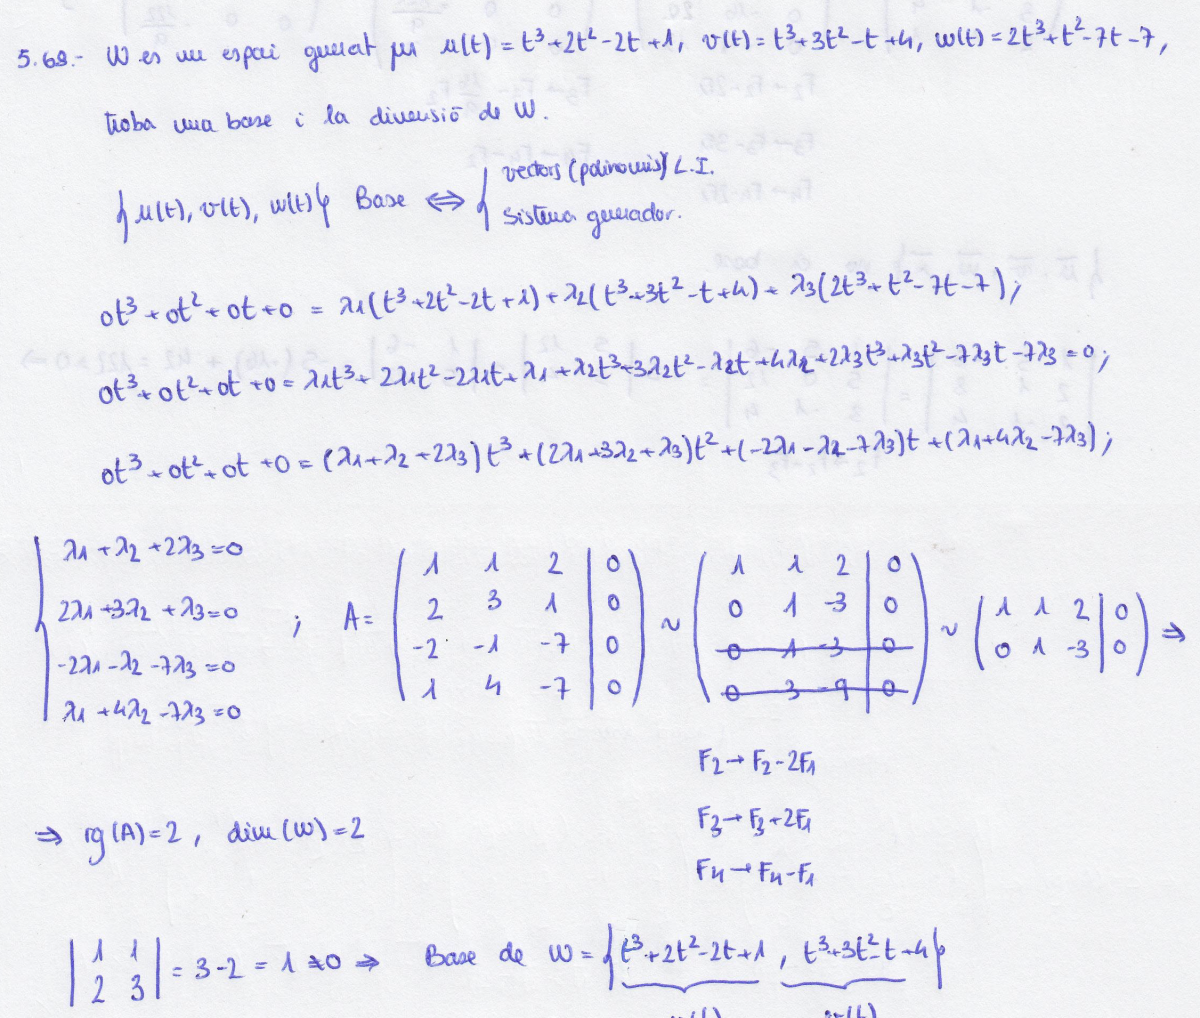 5.68.- W es un espai generat per u(t) = t³+2t²-2t+1, v(t) = t³+3t²-t+4, w(t) = 2t³+t²-7t-7,
troba una base i la dimensió de W.
{u(t), v(t), w(t)} Base ⇔ { vectors (polinomis) L.I.
sistema generador.
0t³+0t²+0t+0 = λ1(t³+2t²-2t+1)+λ2(t³+3t²-t+4)+λ3(2t³+t²-7t-7);
0t³+0t²+0t+0 = λ1t³+2λ1t²-2λ1t+λ1+λ2t³+3λ2t²-λ2t+4λ2+2λ3t³+λ3t²-7λ3t-7λ3=0;
0t³+0t²+0t+0 = (λ1+λ2+2λ3)t³+(2λ1+3λ2+λ3)t²+(-2λ1-λ2-7λ3)t+(λ1+4λ2-7λ3);
λ1+λ2+2λ3=0
2λ1+3λ2+λ3=0
-2λ1-λ2-7λ3=0
λ1+4λ2-7λ3=0
; A=
1 1 2 | 0
2 3 1 | 0
-2 -1 -7 | 0
1 4 -7 | 0
~
1 1 2 | 0
0 1 -3 | 0
0 1 -3 | 0
0 3 -9 | 0
~
1 1 2 | 0
0 1 -3 | 0
⇒
F2→F2-2F1
F3→F3+2F1
F4→F4-F1
⇒ rg(A)=2, dim(W)=2
| 1 1 |
| 2 3 | = 3-2 = 1 ≠0 ⇒ Base de W = {t³+2t²-2t+1, t³+3t²-t+4}